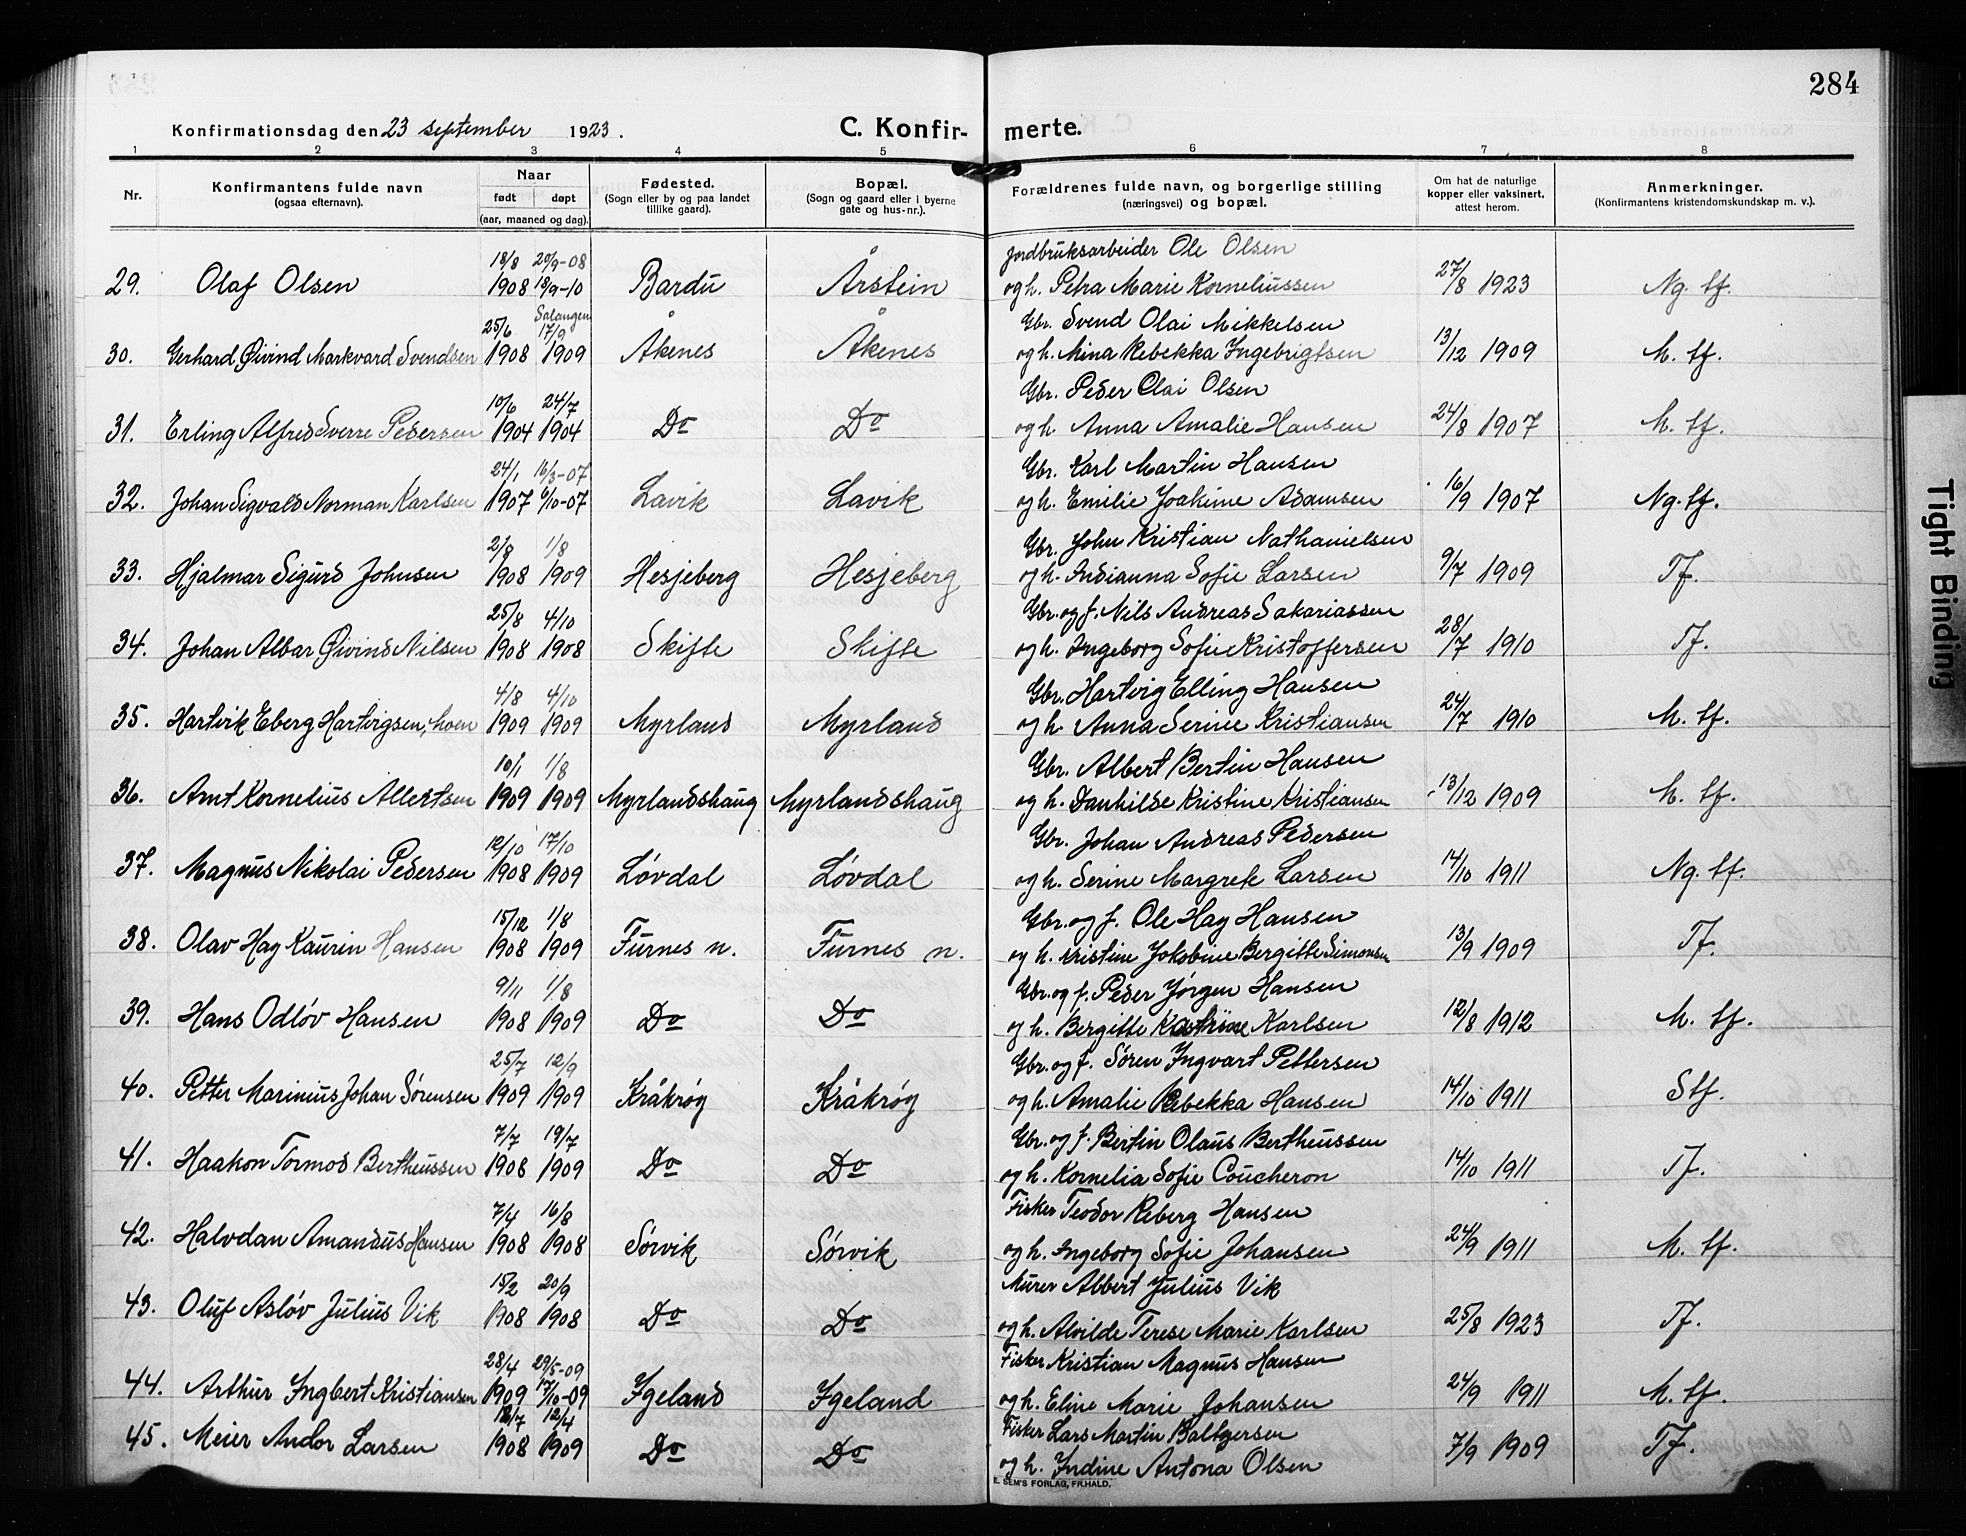 284
Konfirmationsdag den 23 september 1923.
C. Konfir- merte.
1 2 3 4 5 6 7 8
Nr.
Konfirmantens fulde navn
(ogsaa efternavn).
Naar
født døpt
(aar, maaned og dag).
Fødested.
(Sogn eller by og paa landet
tillike gaard).
Bopæl.
(Sogn og gaard eller i byerne
gate og hus-nr.).
Forældrenes fulde navn, og borgerlige stilling
(næringsvei) og bopæl.
Om hat de naturlige
kopper eller vaksinert,
attest herom.
Anmerkninger.
(Konfirmantens kristendomskundskap m. v.).
18/8 20/9-08 Jordbruksarbeider Ole Olsen
29. Olaf Olsen 1908 18/9-10 Bardu Årstein og h. Petra Marie Korneliussen 27/8 1923 Ng. tf.
Salangen
25/6 17/9 Gbr. Svend Olai Mikkelsen
30. Gerhard Øivind Markvard Svendsen 1908 1909 Åkenes Åkenes og h. Mina Rebekka Ingebrigtsen 13/12 1909 M. tf.
10/6 24/7 Gbr. Peder Olai Olsen
31. Erling Alfred Sverre Pedersen 1904 1904 Do Do og h. Anna Amalie Hansen 24/8 1907 M. tf.
24/1 16/3-07 Gbr. Karl Martin Hansen
32. Johan Sigvald Norman Karlsen 1907 6/10-07 Lavik Lavik og h. Emilie Joakime Adamsen 16/9 1907 Ng. tf.
2/8 1/8 Gbr. John Kristian Nathanielsen
33. Hjalmar Sigurd Johnsen 1908 1909 Hesjeberg Hesjeberg og h. Indianna Sofie Larsen 9/7 1909 Tf.
25/8 4/10 Gbr. og f. Nils Andreas Sakariassen
34. Johan Albar Øivind Nilsen 1908 1908 Skifte Skifte og h. Ingeborg Sofie Kristoffersen 28/7 1910 Tf.
4/8 4/10 Gbr. Hartvig Elling Hansen
35. Hartvik Eberg Hartvigsen, hoem 1909 1909 Myrland Myrland og h. Anna Serine Kristiansen 24/7 1910 M. tf.
10/1 1/8 Gbr. Albert Bertin Hansen
36. Arnt Kornelius Albertsen 1909 1909 Myrlandshaug Myrlandshaug og h. Danhilde Kristine Kristiansen 13/12 1909 M. tf.
12/10 17/10 Gbr. Johan Andreas Pedersen
37. Magnus Nikolai Pedersen 1908 1909 Løvdal Løvdal og h. Serine Margrek Larsen 14/10 1911 Ng. tf.
15/12 1/8 Gbr. og f. Ole Hag Hansen
38. Olav Hag Kaurin Hansen 1908 1909 Furnes n. Furnes n. og h. Kristine Jakobine Bergitte Simonsen 13/9 1909 Tf.
9/11 1/8 Gbr. og f. Peder Jørgen Hansen
39. Hans Odløv Hansen 1908 1909 Do Do og h. Bergitte Katrine Karlsen 12/8 1912 M. tf.
25/7 12/9 Gbr. og f. Søren Ingvart Pettersen
40. Petter Marinius Johan Sørensen 1909 1909 Kråkrøg Kråkrøg og h. Amalie Rebekka Hansen 14/10 1911 Stf.
7/7 19/7 Gbr. og f. Bertin Olaus Bertheussen
41. Haakon Tormod Bertheussen 1908 1909 Do Do og h. Kornelia Sofie Coucheron 14/10 1911 Tf.
7/4 16/8 Fisker Teodor Reberg Hansen
42. Halvdan Amandus Hansen 1908 1908 Sørvik Sørvik og h. Ingeborg Sofie Johansen 24/9 1911 M. tf.
15/2 20/9 Murer Albert Julius Vik
43. Oluf Asløv Julius Vik 1908 1908 Do Do og h. Alvilde Terese Marie Karlsen 25/8 1923 Tf.
28/4 29/5-09 Fisker Kristian Magnus Hansen
44. Arthur Ingbert Kristiansen 1909 17/10-09 Igeland Igeland og h. Eline Marie Johansen 24/9 1911 M. tf.
12/4 Fisker Lars Martin Baltzersen
45. Meier Andor Larsen 1908 1909 Do Do og h. Indine Antona Olsen 7/9 1909 Tf.
E. SEM'S FORLAG, FR.HALD.
Tight Binding